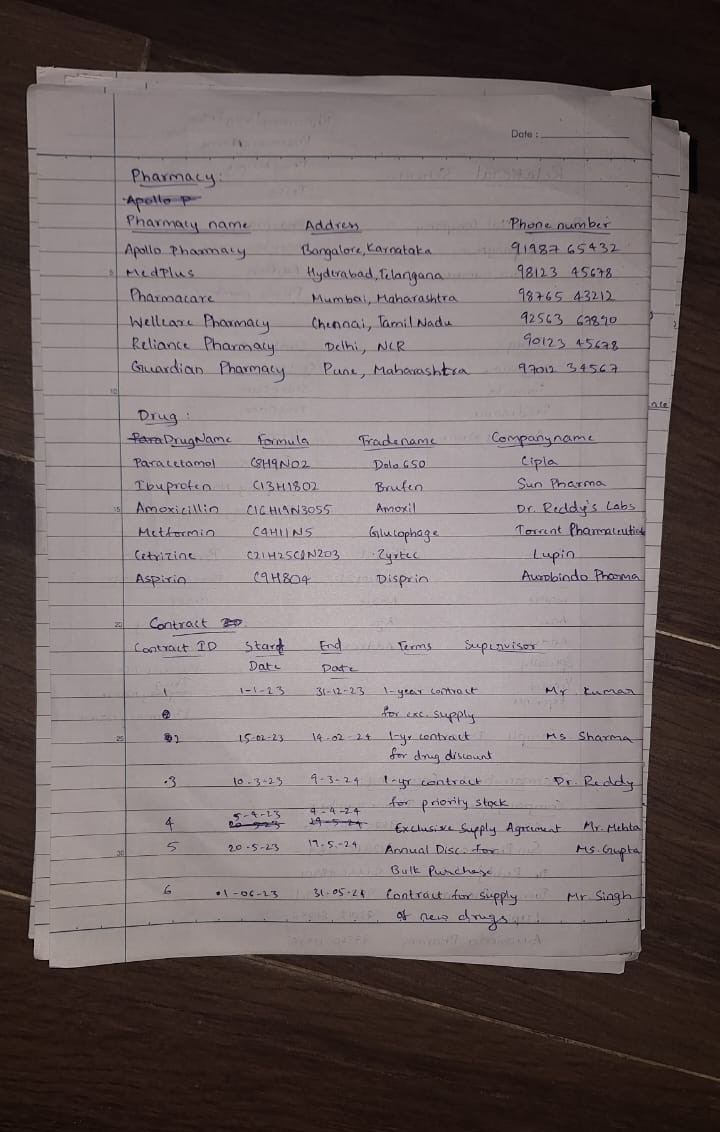 Date :
Pharmacy:
Apollo P
Pharmacy name Address Phone number
Apollo Pharmacy Bangalore, Karnataka 91987 65432
MedPlus Hyderabad, Telangana 98123 45678
Pharmacare Mumbai, Maharashtra 98765 43212
Wellcare Pharmacy Chennai, Tamil Nadu 92563 67890
Reliance Pharmacy Delhi, NCR 90123 45678
Guardian Pharmacy Pune, Maharashtra 97012 34567
Drug :
Para DrugName Formula Tradename Companyname
Paracetamol C8H9NO2 Dolo 650 Cipla
Ibuprofen C13H18O2 Brufen Sun Pharma
Amoxicillin C16H19N3O5S Amoxil Dr. Reddy's Labs
Metformin C4H11N5 Glucophage Torrent Pharmaceutical
Cetrizine C21H25ClN2O3 Zyrtec Lupin
Aspirin C9H8O4 Disprin Aurobindo Pharma
20 Contract
Contract ID Start End Terms Supervisor
Date Date
1 1-1-23 31-12-23 1-year contract Mr. Kumar
for exc. supply
25 2 15-02-23 14-02-24 1-yr contract Ms Sharma
for drug discount
3 10-3-23 9-3-24 1-yr contract Dr. Reddy
for priority stock
5-4-23 4-4-24
4 Exclusive Supply Agreement Mr. Mehta
5 20-5-23 19-5-24 Annual Disc. for Ms. Gupta
Bulk Purchase
6 01-06-23 31-05-24 Contract for supply Mr Singh
of new drugs